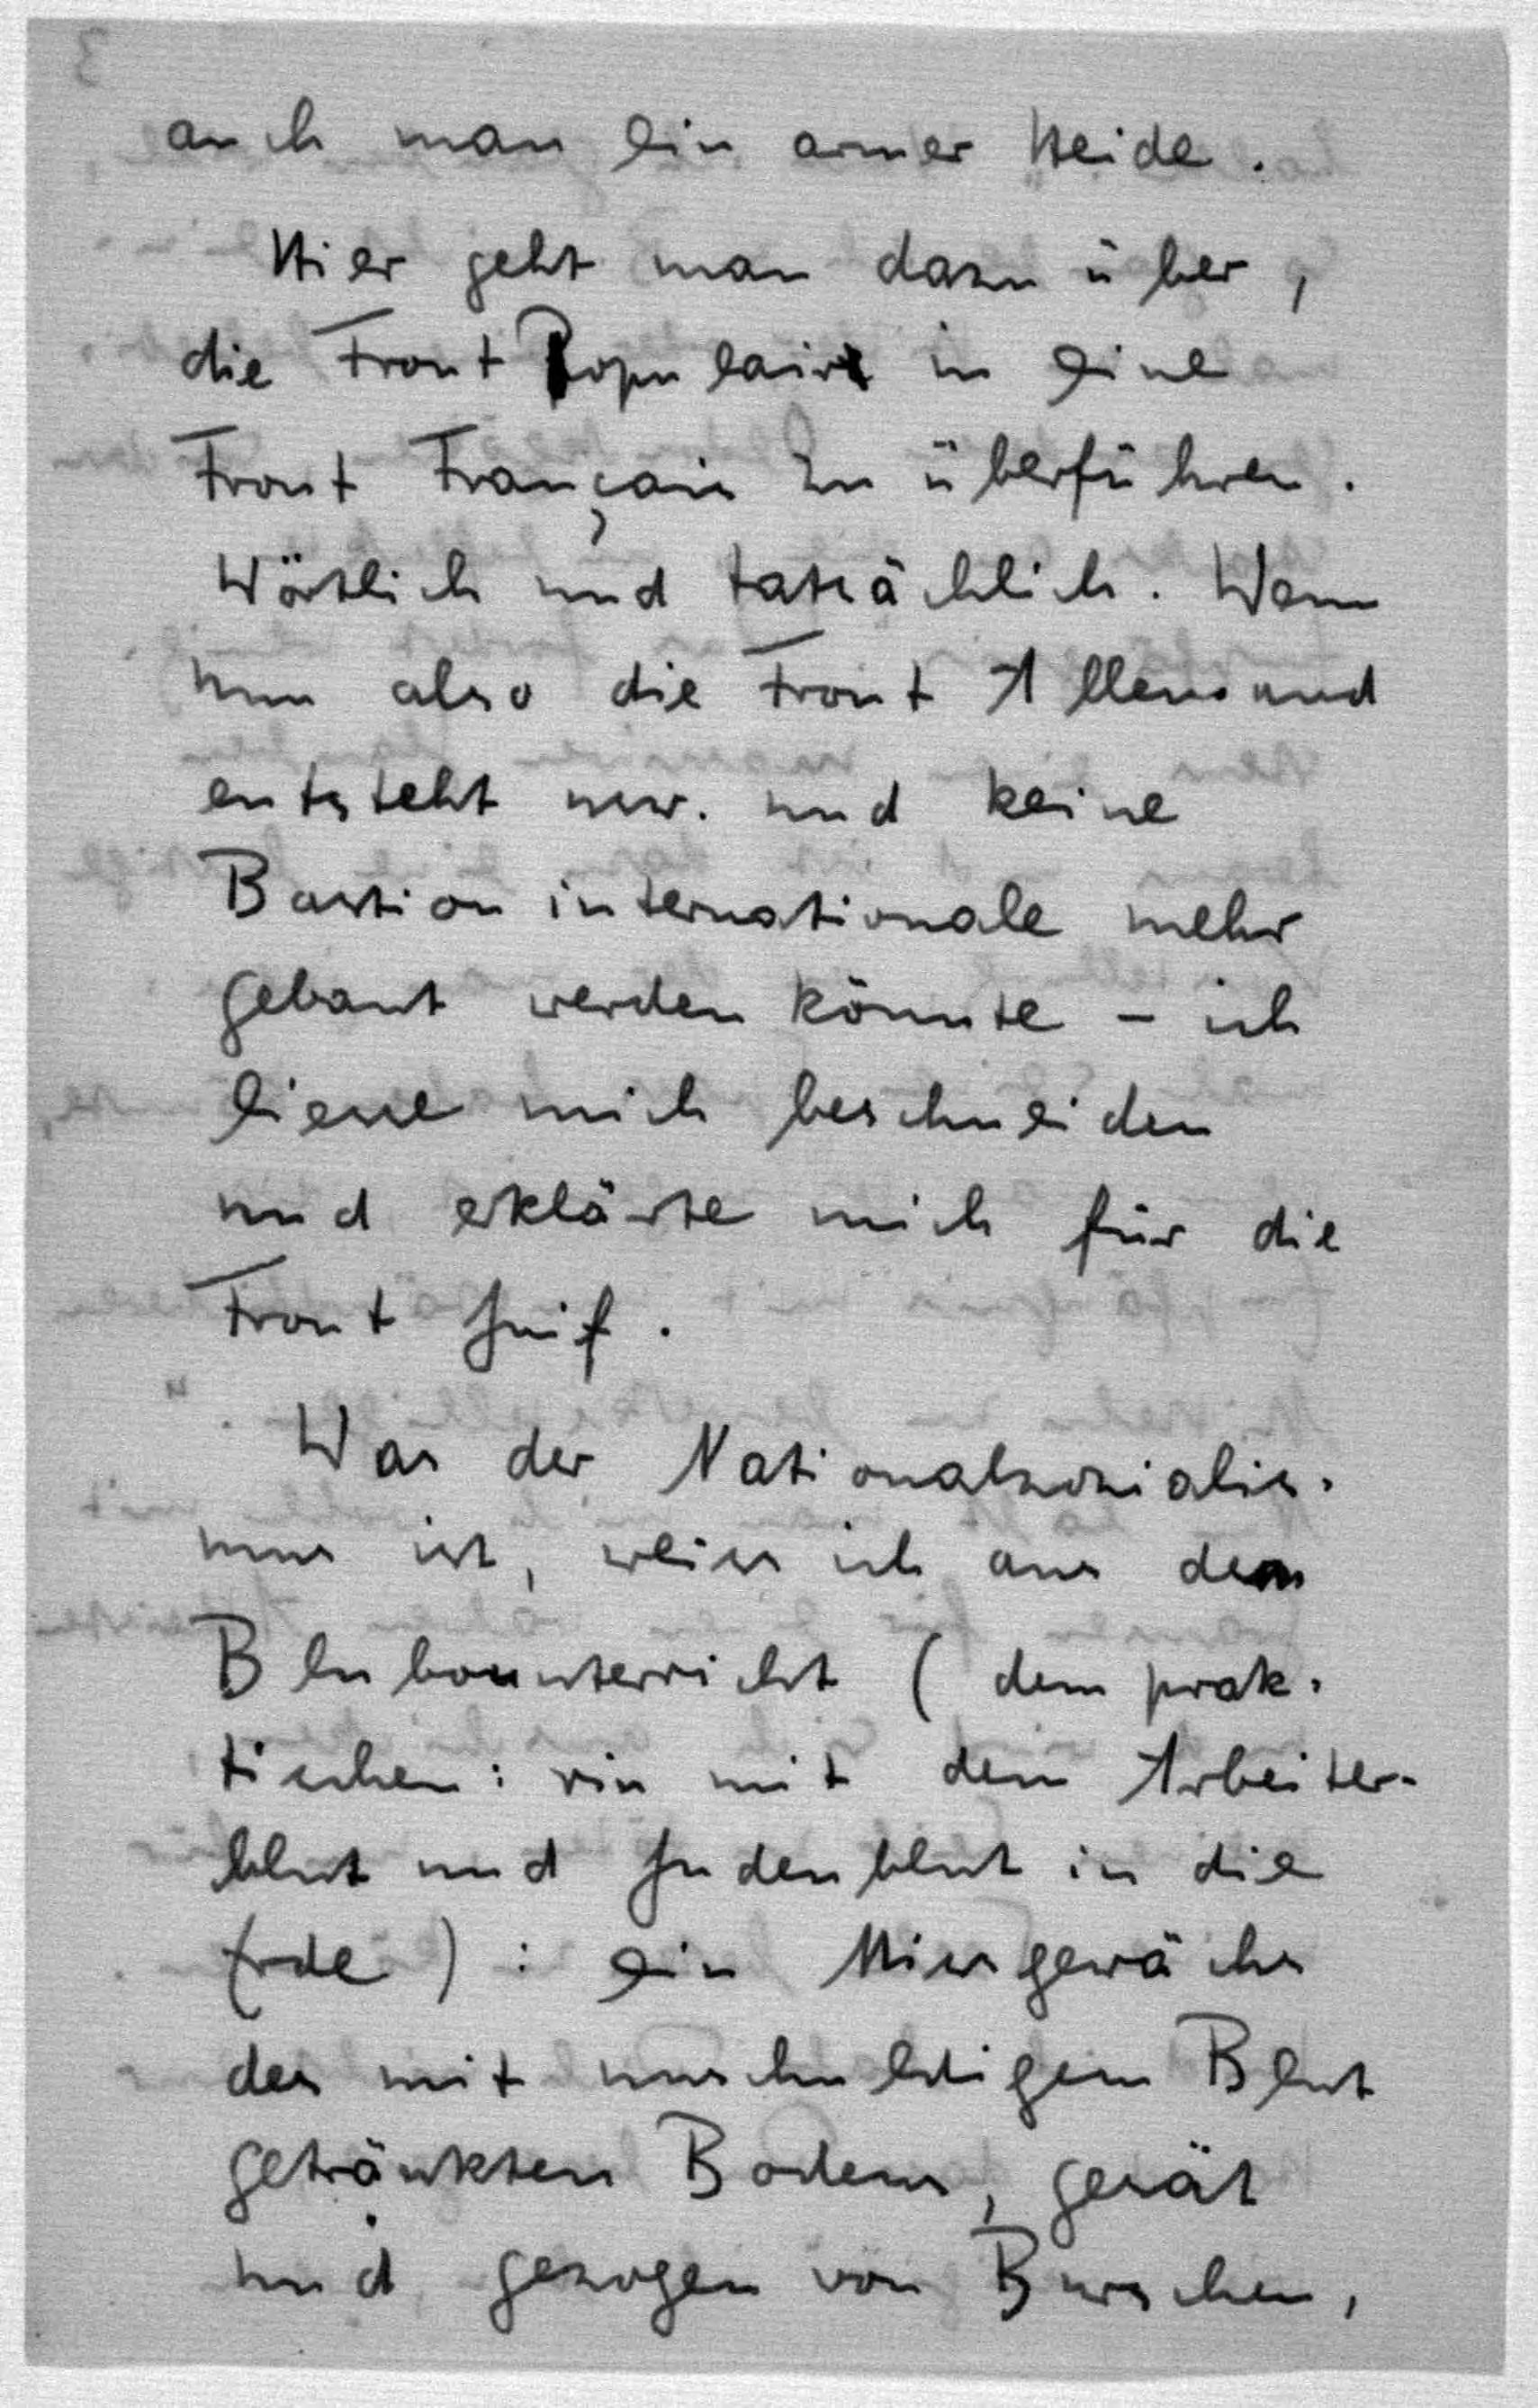 auch man ein armer Heide.
Hier geht man dazu über,
die Front Populaire in eine
Front Français zu überführen.
Wörtlich und tatsächlich. Wenn
nun also die Front Allemand
entsteht usw. und keine
Bastion internationale mehr
gebaut werden könnte – ich
liesse mich beschneiden
und erklärte mich für die
Front Juif.
Was der Nationalsozialis-
mus ist, weiss ich aus dem
Blubounterricht (dem prak-
tischen: rin mit dem Arbeiter-
blut und Judenblut in die
Erde): ein Missgewächs
des mit unschuldigem Blut
getränkten Bodens, gesät
und gezogen von Burschen,